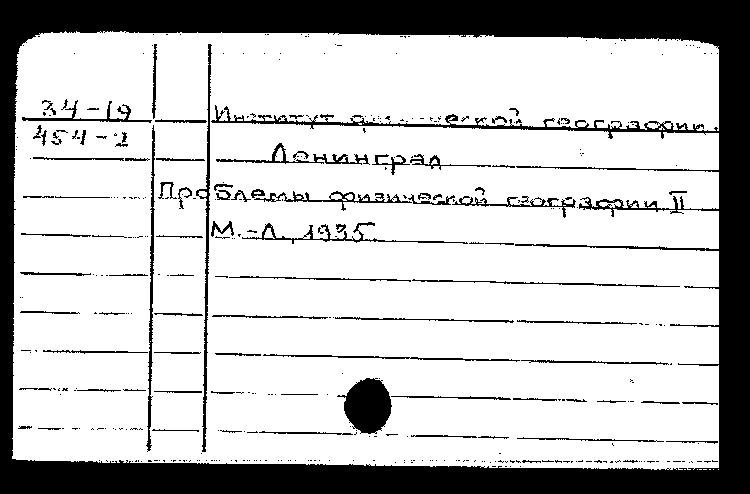 34-19
454-2
Институт физической географии.
Ленинград
Проблемы физической географии II
М.-Л., 1935.